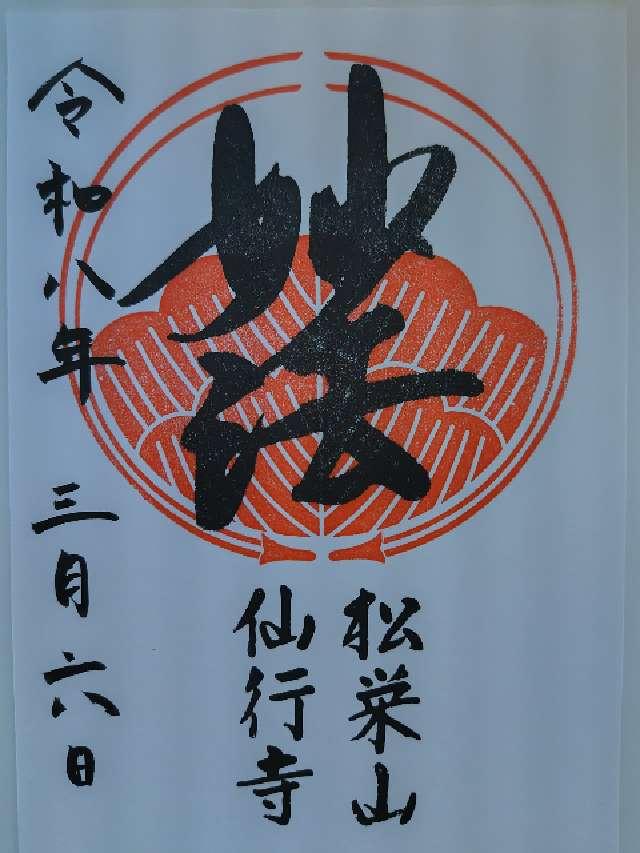 妙法
松栄山
仙行寺
令和八年 三月六日